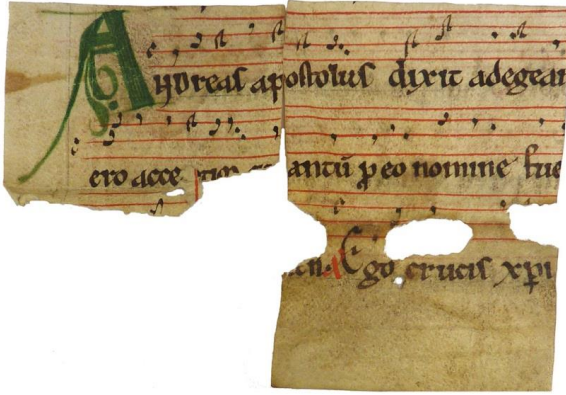 Andreas apostolus dixit ad egean
ero acce antū p eo nomine fue
Ego crucis xpi